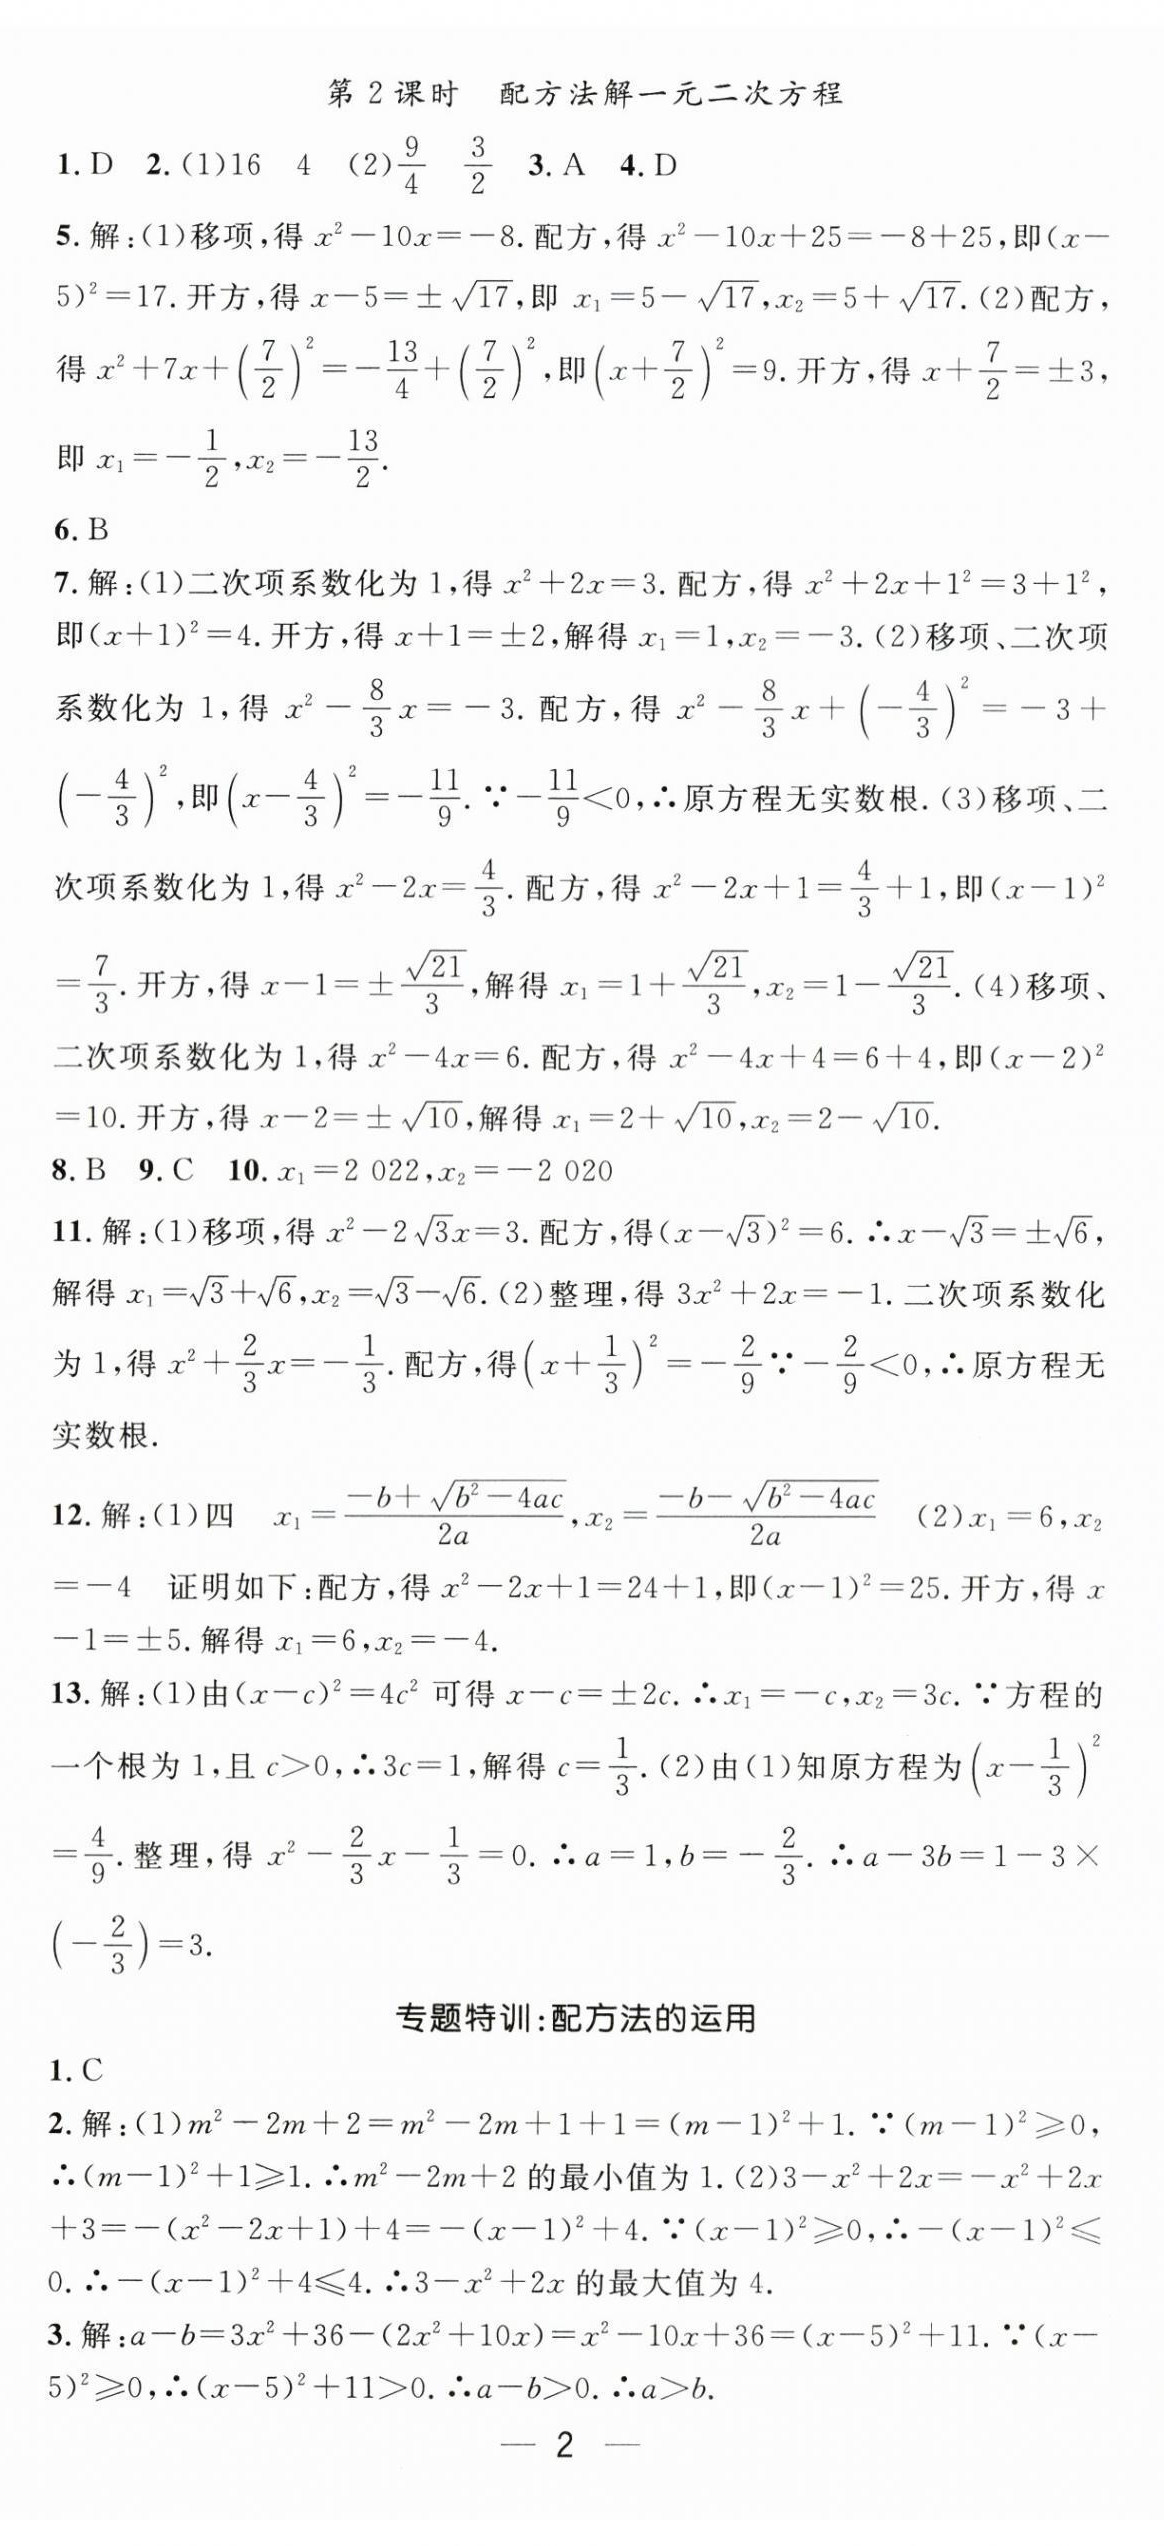 第 2 课时　配方法解一元二次方程
1. D　2. (1)16　4　(2)9/4　3/2　3. A　4. D
5. 解:(1)移项,得 x²－10x＝－8. 配方,得 x²－10x＋25＝－8＋25,即(x－
5)²＝17. 开方,得 x－5＝±√17,即 x₁＝5－√17,x₂＝5＋√17. (2)配方,
得 x²＋7x＋(7/2)²＝－13/4＋(7/2)²,即(x＋7/2)²＝9. 开方,得 x＋7/2＝±3,
即 x₁＝－1/2,x₂＝－13/2.
6. B
7. 解:(1)二次项系数化为 1,得 x²＋2x＝3. 配方,得 x²＋2x＋1²＝3＋1²,
即(x＋1)²＝4. 开方,得 x＋1＝±2,解得 x₁＝1,x₂＝－3. (2)移项、二次项
系数化为 1,得 x²－8/3x＝－3. 配方,得 x²－8/3x＋(－4/3)²＝－3＋
(－4/3)²,即(x－4/3)²＝－11/9. ∵－11/9＜0,∴原方程无实数根. (3)移项、二
次项系数化为 1,得 x²－2x＝4/3. 配方,得 x²－2x＋1＝4/3＋1,即(x－1)²
＝7/3. 开方,得 x－1＝±√21/3,解得 x₁＝1＋√21/3,x₂＝1－√21/3. (4)移项、
二次项系数化为 1,得 x²－4x＝6. 配方,得 x²－4x＋4＝6＋4,即(x－2)²
＝10. 开方,得 x－2＝±√10,解得 x₁＝2＋√10,x₂＝2－√10.
8. B　9. C　10. x₁＝2 022,x₂＝－2 020
11. 解:(1)移项,得 x²－2√3x＝3. 配方,得(x－√3)²＝6. ∴x－√3＝±√6,
解得 x₁＝√3＋√6,x₂＝√3－√6. (2)整理,得 3x²＋2x＝－1. 二次项系数化
为 1,得 x²＋2/3x＝－1/3. 配方,得(x＋1/3)²＝－2/9∵－2/9＜0,∴原方程无
实数根.
12. 解:(1)四　x₁＝(－b＋√(b²－4ac))/2a,x₂＝(－b－√(b²－4ac))/2a　(2)x₁＝6,x₂
＝－4　证明如下:配方,得 x²－2x＋1＝24＋1,即(x－1)²＝25. 开方,得 x
－1＝±5. 解得 x₁＝6,x₂＝－4.
13. 解:(1)由(x－c)²＝4c² 可得 x－c＝±2c. ∴x₁＝－c,x₂＝3c. ∵方程的
一个根为 1,且 c＞0,∴3c＝1,解得 c＝1/3. (2)由(1)知原方程为(x－1/3)²
＝4/9. 整理,得 x²－2/3x－1/3＝0. ∴a＝1,b＝－2/3. ∴a－3b＝1－3×
(－2/3)＝3.
专题特训:配方法的运用
1. C
2. 解:(1)m²－2m＋2＝m²－2m＋1＋1＝(m－1)²＋1. ∵(m－1)²≥0,
∴(m－1)²＋1≥1. ∴m²－2m＋2 的最小值为 1. (2)3－x²＋2x＝－x²＋2x
＋3＝－(x²－2x＋1)＋4＝－(x－1)²＋4. ∵(x－1)²≥0,∴－(x－1)²≤
0. ∴－(x－1)²＋4≤4. ∴3－x²＋2x 的最大值为 4.
3. 解:a－b＝3x²＋36－(2x²＋10x)＝x²－10x＋36＝(x－5)²＋11. ∵(x－
5)²≥0,∴(x－5)²＋11＞0. ∴a－b＞0. ∴a＞b.
— 2 —